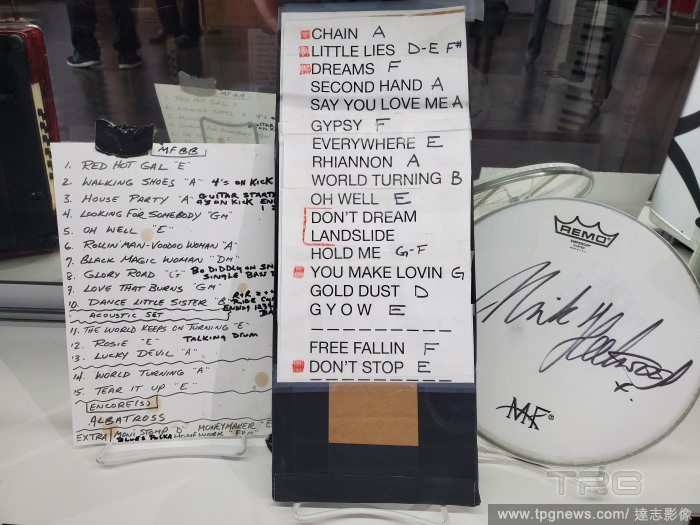 MFBB
1. RED HOT GAL "E"
2. WALKING SHOES "A" 4's ON KICK
3. HOUSE PARTY "A" GUITAR STARTS
4. LOOKING FOR SOMEBODY "GM"
5. OH WELL "E"
6. ROLLIN' MAN-VOODOO WOMAN "A"
7. BLACK MAGIC WOMAN "DM"
8. GLORY ROAD "G" BO DIDDLEY ON SN
SINGLE
9. LOVE THAT BURNS "GM"
10. DANCE LITTLE SISTER
ACOUSTIC SET
11. THE WORLD KEEPS ON TURNING "E"
12. ROSIE "E" TALKING DRUM
13. LUCKY DEVIL "A"
14. WORLD TURNING "A"
15. TEAR IT UP "E"
ENCORE(S)
ALBATROSS
EXTRA MANI STOMP "D" MONEYMAKER "E"
BLUES POLKA HOMEWORK "F#M"
CHAIN A
LITTLE LIES D-E F#
DREAMS F
SECOND HAND A
SAY YOU LOVE ME A
GYPSY F
EVERYWHERE E
RHIANNON A
WORLD TURNING B
OH WELL E
DON'T DREAM
LANDSLIDE
HOLD ME G-F
YOU MAKE LOVIN G
GOLD DUST D
GYOW E
FREE FALLIN F
DON'T STOP E
REMO
Mick Fleetwood
MF
TPG
www.tpgnews.com/達志影像